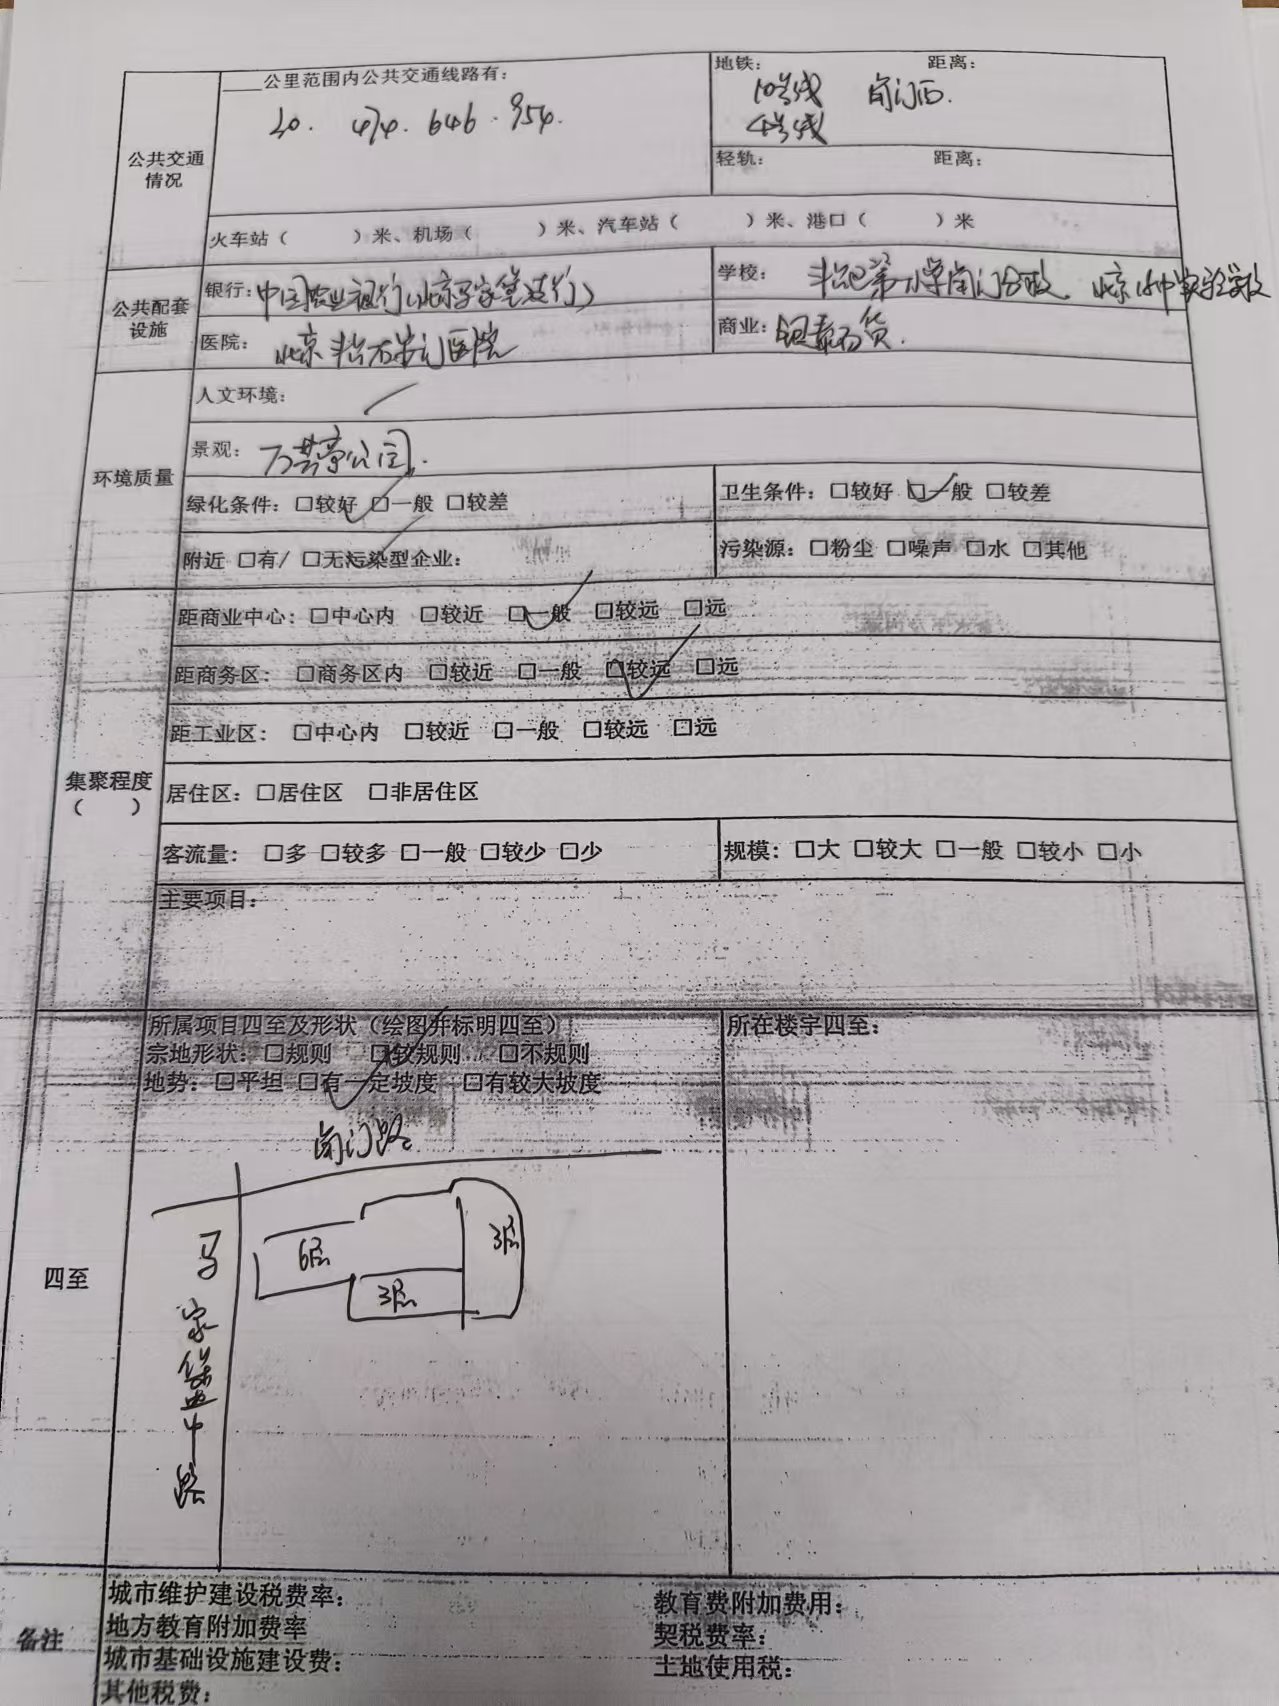 ____公里范围内公共交通线路有：
地铁： 距离：
20. 474. 646. 954.
10号线 角门西.
4号线
公共交通情况
轻轨： 距离：
火车站（ ）米、机场（ ）米、汽车站（ ）米、港口（ ）米
公共配套设施
银行：中国农业银行（北京马家堡支行）
学校： 丰台区第一小学角门分校、北京 实验学校
医院： 北京丰台右安门医院
商业：银泰百货.
环境质量
人文环境：
景观： 万芳亭公园.
绿化条件：□较好 □一般 □较差
卫生条件：□较好 □一般 □较差
附近 □有/ □无污染型企业：
污染源：□粉尘 □噪声 □水 □其他
集聚程度
（ ）
距商业中心：□中心内 □较近 □一般 □较远 □远
距商务区： □商务区内 □较近 □一般 □较远 □远
距工业区： □中心内 □较近 □一般 □较远 □远
居住区：□居住区 □非居住区
客流量： □多 □较多 □一般 □较少 □少
规模：□大 □较大 □一般 □较小 □小
主要项目：
四至
所属项目四至及形状（绘图并标明四至）
宗地形状：□规则 □较规则 □不规则
地势：□平坦 □有一定坡度 □有较大坡度
所在楼宇四至：
角门路
马家堡中路
6层
3层
3层
备注
城市维护建设税费率：
教育费附加费用：
地方教育附加费率
契税费率：
城市基础设施建设费：
土地使用税：
其他税费：